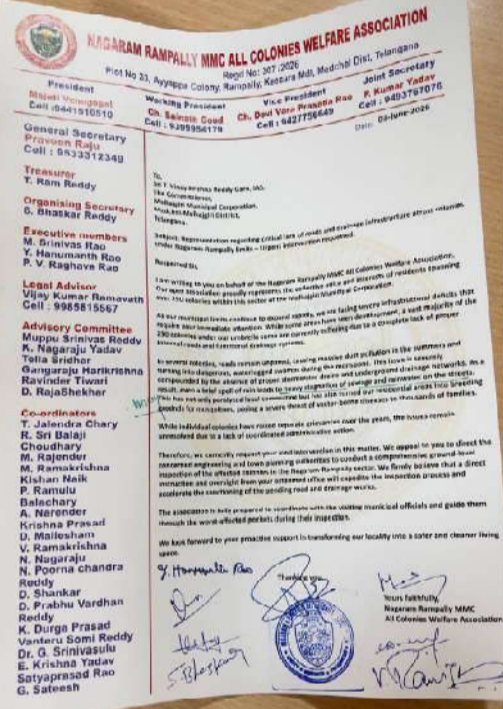 NAGARAM RAMPALLY MMC ALL COLONIES WELFARE ASSOCIATION
Regd No: 307 /2026
Plot No 23, Ayyappa Colony, Rampally, Keesara Mdl, Medchal Dist, Telangana
President
Cell :9441510510
Working President
Ch. Sainath Goud
Cell : 9399956179
Vice President
Ch. Devi Vara Prasada Rao
Cell : 9427756649
Joint Secretary
P. Kumar Yadav
Cell : 9493797076
General Secretary
Praveen Raju
Cell : 9533312349
Treasurer
T. Ram Reddy
Organising Secretary
S. Bhaskar Reddy
Executive members
M. Srinivas Rao
Y. Hanumanth Rao
P. V. Raghava Rao
Legal Advisor
Vijay Kumar Ramavath
Cell : 9985815567
Advisory Committee
Muppu Srinivas Reddy
K. Nagaraju Yadav
Tolla Sridhar
Gangaraju Harikrishna
Ravinder Tiwari
D. RajaShekhar
Co-ordinators
T. Jalendra Chary
R. Sri Balaji
Choudhary
M. Rajender
M. Ramakrishna
Kishan Naik
P. Ramulu
Balachary
A. Narender
Krishna Prasad
D. Mallesham
V. Ramakrishna
N. Nagaraju
N. Poorna chandra
Reddy
D. Shankar
D. Prabhu Vardhan
Reddy
K. Durga Prasad
Vanteru Somi Reddy
Dr. G. Srinivasulu
E. Krishna Yadav
Satyaprasad Rao
G. Sateesh
Date: 03-June-2026
To,
Sri T Vinay Krishna Reddy Garu, IAS,
The Commissioner,
Malkajgiri Municipal Corporation,
Medchal-Malkajgiri District,
Telangana.
Subject: Representation regarding critical lack of roads and drainage infrastructure across colonies
under Nagaram Rampally limits – Urgent intervention requested.
Respected Sir,
I am writing to you on behalf of the Nagaram Rampally MMC All Colonies Welfare Association.
Our apex association proudly represents the collective voice and interests of residents spanning
over 250 colonies within this sector of the Malkajgiri Municipal Corporation.
As our municipal limits continue to expand rapidly, we are facing severe infrastructural deficits that
require your immediate attention. While some areas have seen development, a vast majority of the
250 colonies under our umbrella are currently suffering due to a complete lack of proper
internal roads and functional drainage systems.
In several colonies, roads remain unpaved, causing massive dust pollution in the summers and
turning into dangerous, waterlogged swamps during the monsoons. This issue is severely
compounded by the absence of proper stormwater drains and underground drainage networks. As a
result, even a brief spell of rain leads to heavy stagnation of sewage and rainwater on the streets.
This has not only paralyzed local commuting but has also turned our residential areas into breeding
grounds for mosquitoes, posing a severe threat of vector-borne diseases to thousands of families.
While individual colonies have raised separate grievances over the years, the issues remain
unresolved due to a lack of coordinated administrative action.
Therefore, we earnestly request your kind intervention in this matter. We appeal to you to direct the
concerned engineering and town planning authorities to conduct a comprehensive ground-level
inspection of the affected colonies in the Nagaram Rampally sector. We firmly believe that a direct
instruction and oversight from your esteemed office will expedite the inspection process and
accelerate the sanctioning of the pending road and drainage works.
The association is fully prepared to coordinate with the visiting municipal officials and guide them
through the worst-affected pockets during their inspection.
We look forward to your proactive support in transforming our locality into a safer and cleaner living
space.
Y. Hanumanth Rao
Thanking you,
Yours faithfully,
Nagaram Rampally MMC
All Colonies Welfare Association
S. Bhaskar